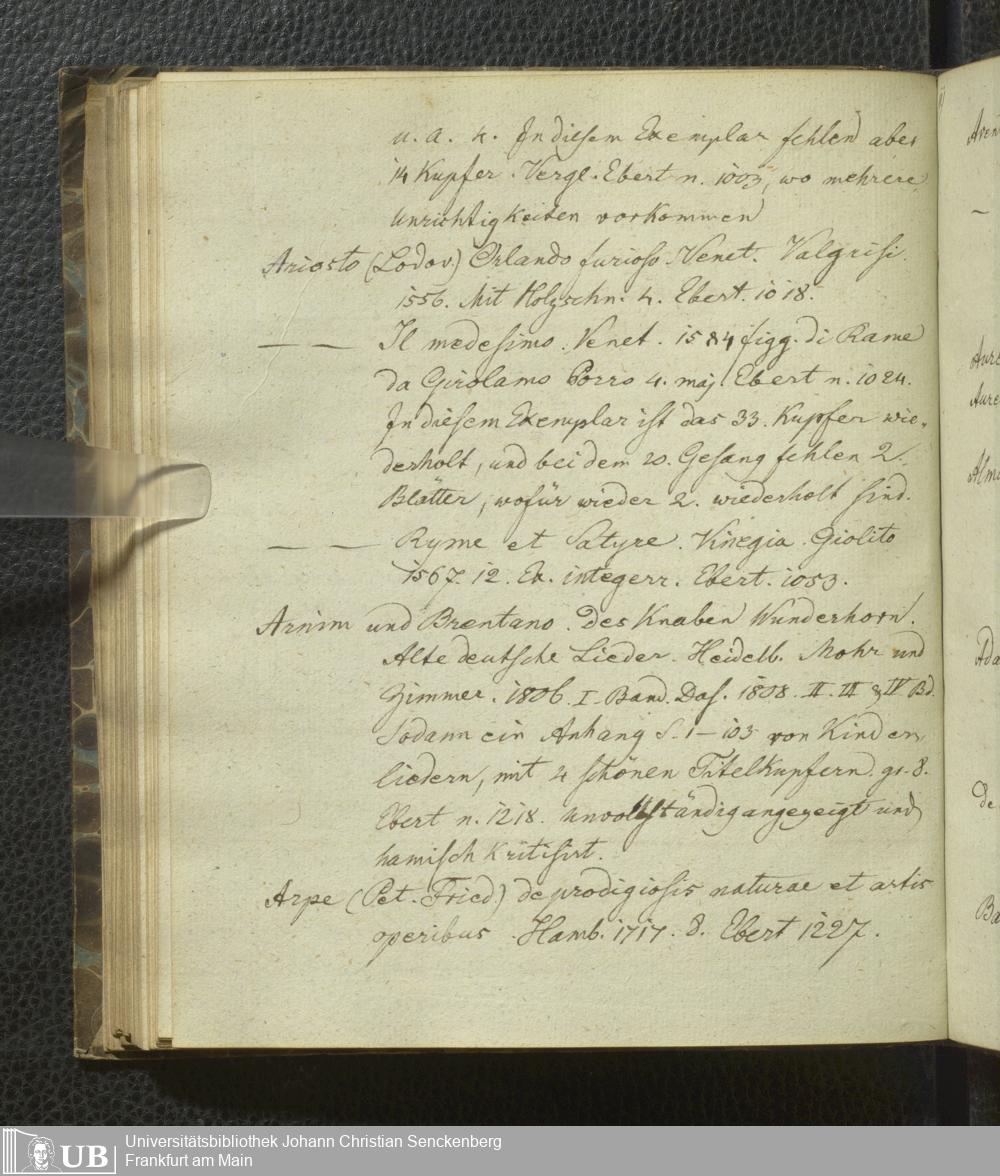 u. a. 4. In diesem Exemplar fehlen aber
14 Kupfer. Vergl. Ebert n. 1003, wo mehrere
Unrichtigkeiten vorkommen
Ariosto (Lodov.) Orlando furioso. Venet. Valgrisi.
1556. Mit Holzschn. 4. Ebert. 1018.
— — Il medesimo. Venet. 1584 figg. di Rame
da Girolamo Porro 4. maj. Ebert n. 1024.
In diesem Exemplar ist das 33. Kupfer wie-
derholt, und bei dem 20. Gesang fehlen 2.
Blätter, wofür wieder 2. wiederholt sind.
— — Ryme et Satyre. Vinegia. Giolito
1567. 12. Ex. integerr. Ebert. 1053.
Arnim und Brentano. Des Knaben Wunderhorn.
Alte deutsche Lieder. Heidelb. Mohr und
Zimmer. 1806. I. Band. Das. 1808. II. III & IV Bd.
Sodann ein Anhang S. 1–103 von Kinder
liedern, mit 4 schönen Titelkupfern. gr. 8.
Ebert n. 1218. unvollständig angezeigt und
hamisch kritisirt.
Arpe (Pet. Fried.) de prodigiosis naturae et artis
operibus. Hamb. 1717. 8. Ebert 1227.
UB
Universitätsbibliothek Johann Christian Senckenberg
Frankfurt am Main